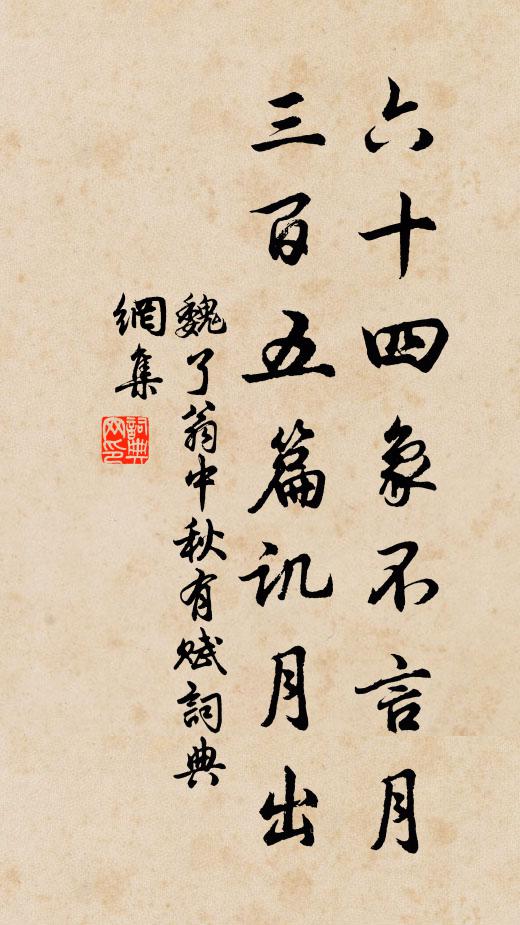 六十四象不言月
三百五篇讥月出
魏了翁中秋有赋詞典
網集
詞典
网印